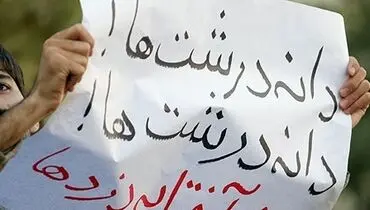 دانه درشت ها!
دانه درشت ها!
آفتابه دزدها